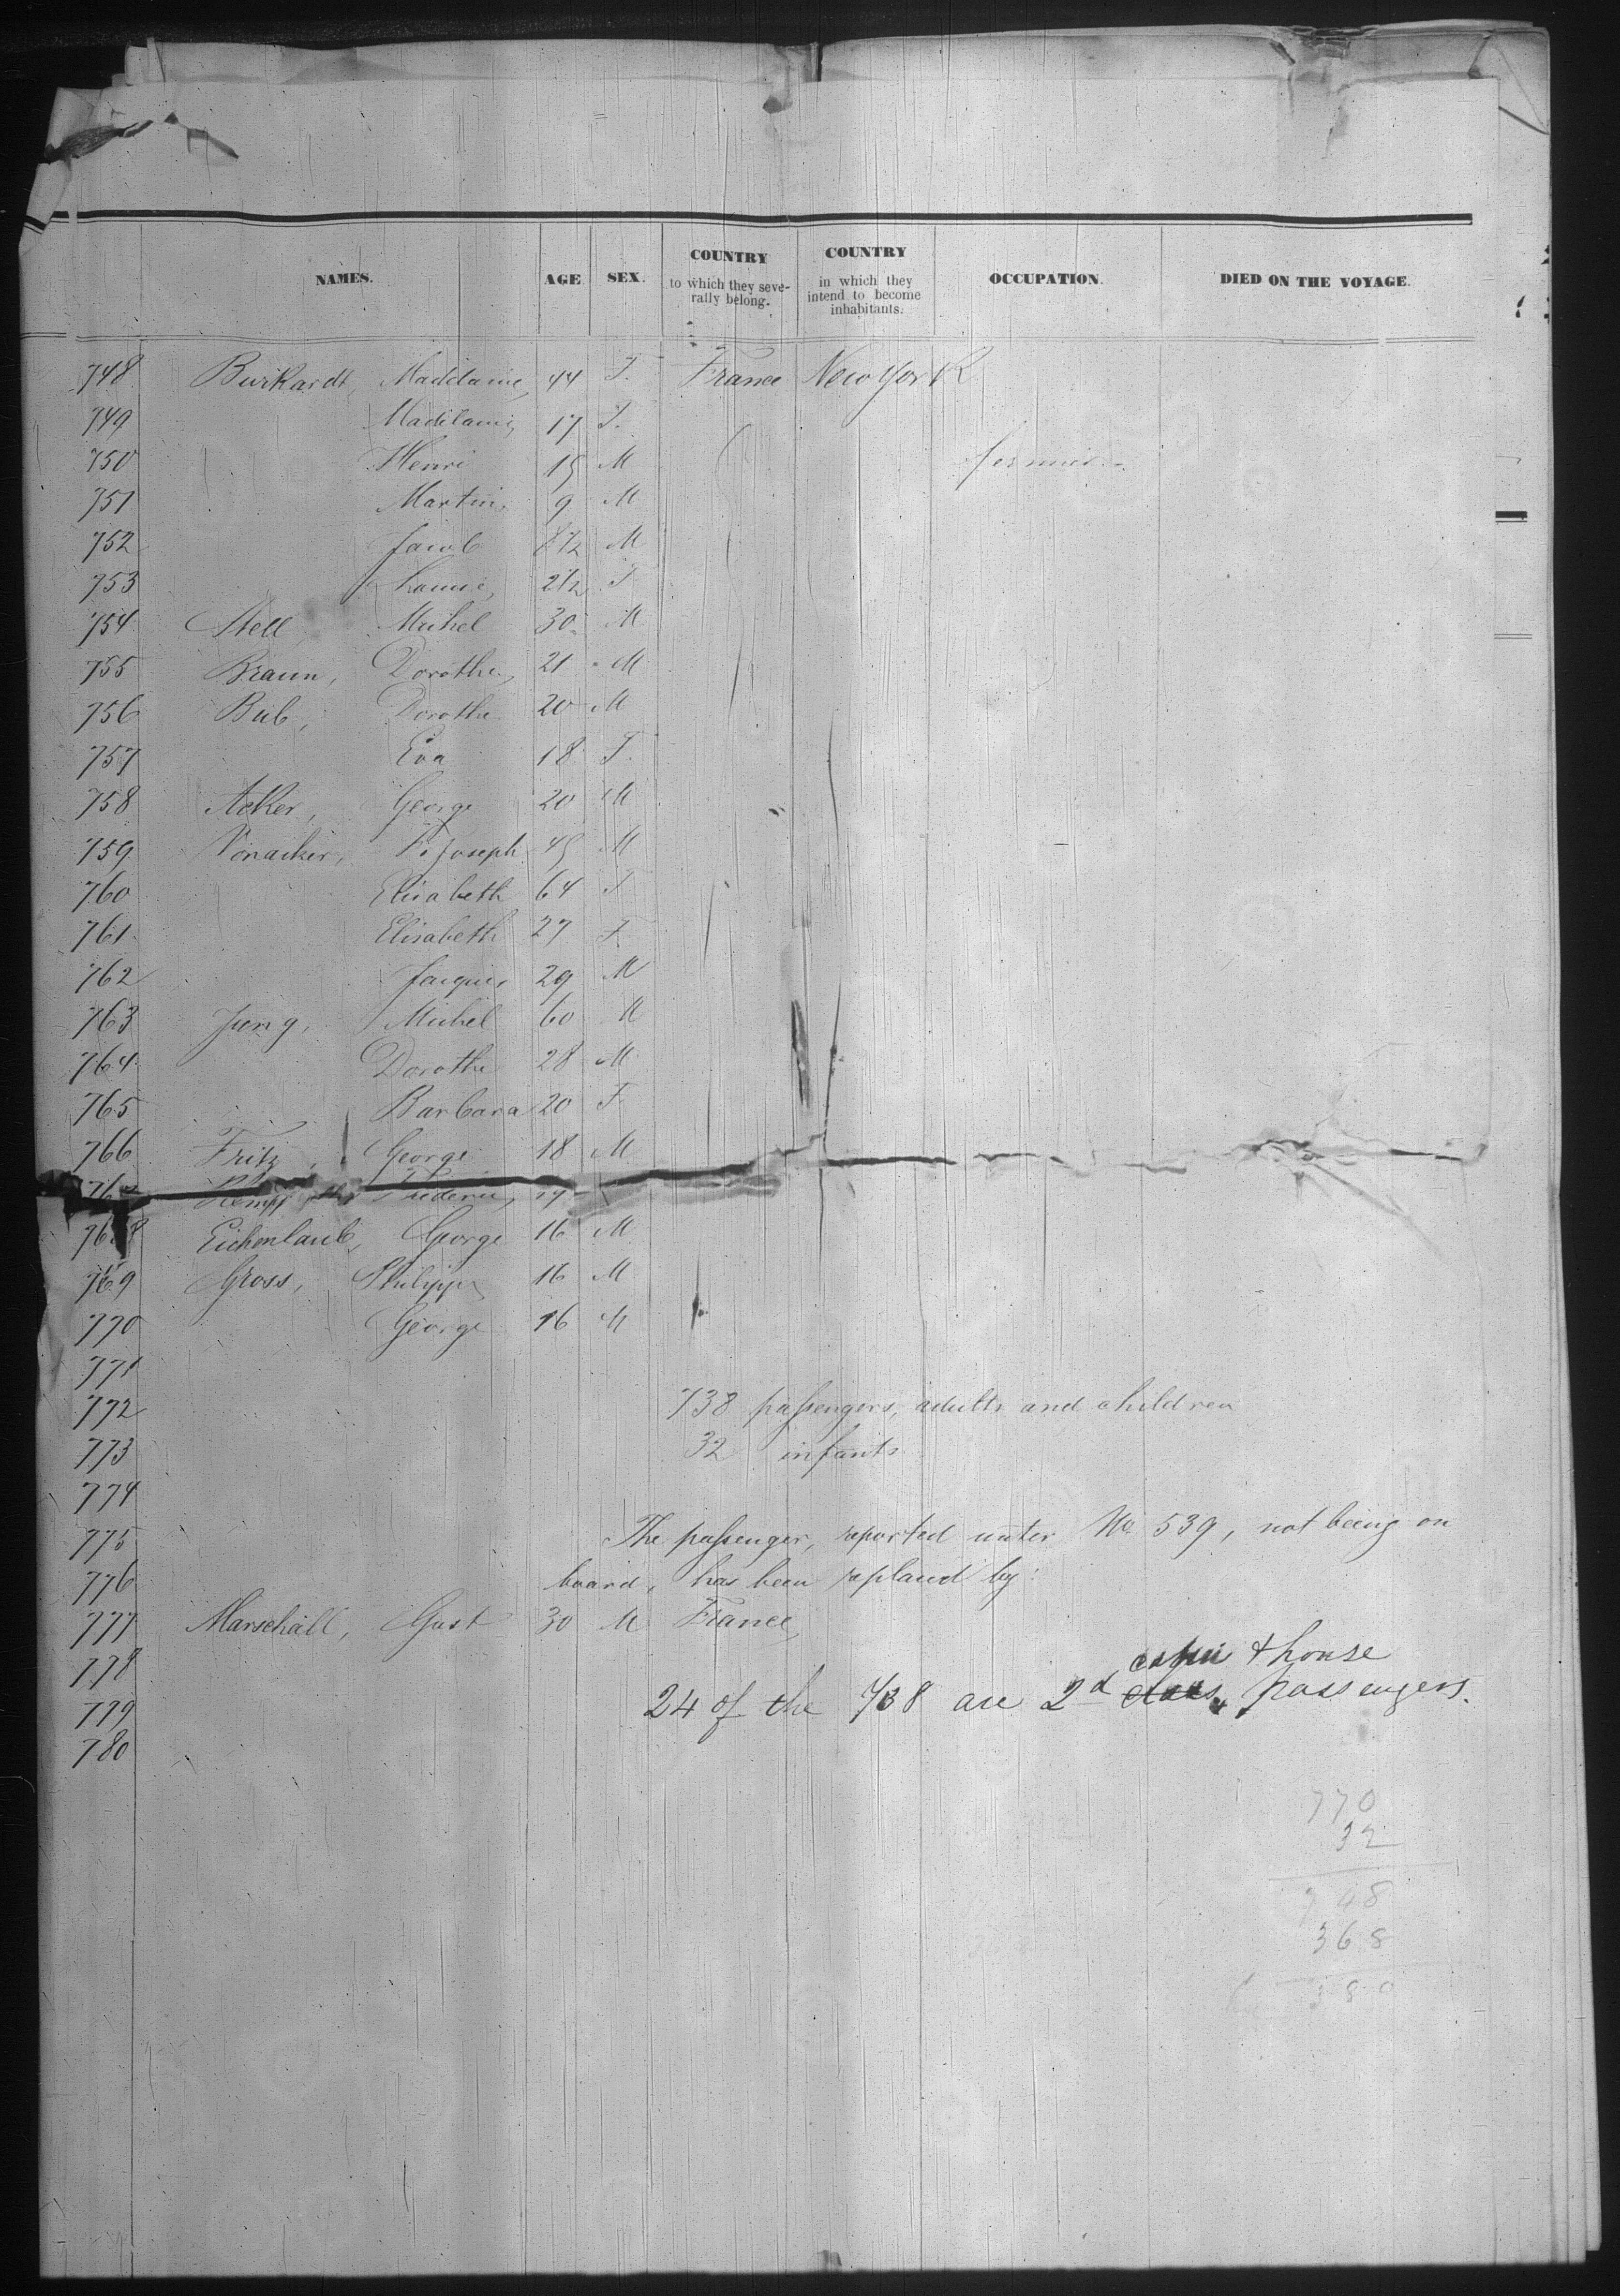 NAMES. AGE SEX. COUNTRY to which they severally belong. COUNTRY in which they intend to become inhabitants. OCCUPATION. DIED ON THE VOYAGE.
748 Burkardt, Madelaine, 44 F. France New York
749 Madelaine, 17 F.
750 Henri 15 M
751 Martin, 9 M
752 Jacob 8 1/2 M
753 2 1/2 F
754 Stell, Michel 30 M
755 Braun, Dorothe, 21 M
756 Bub, Dorothe 20 M
757 Eva 18 F.
758 Acker, George 20 M
759 F. Joseph 45 M
760 Elisabeth 64 F
761 Elisabeth 27 F
762 Jacques 29 M
763 Jung, Michel 60 M
764 Dorothe 28 M
765 Barbara 20 F.
766 Fritz, George 18 M
Kempf Frederic,
768 Eichenlaub, George 16 M
769 Gross, Philippe, 16 M
770 George 16 M
771
772 738 passengers, adults and children
773 32 infants
774
775 The passenger, reported unter No 539, not being on
776 board, has been replaced by:
777 Marschall, Gust 30 M France,
778 cabin & house
779 24 of the 738 are 2d class passengers.
780
770
32
748
368
380